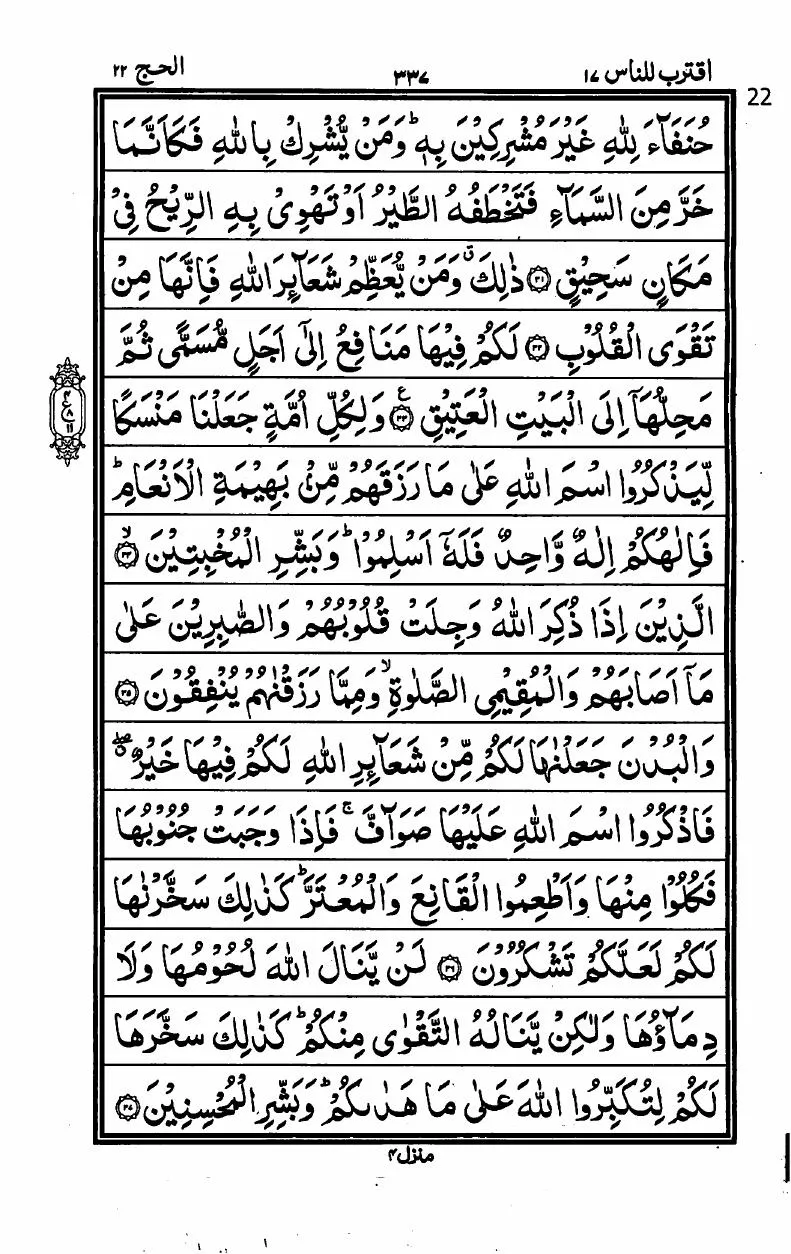 اقترب للناس ١٧
٣٣٧
الحج ٢٢
22
حُنَفَآءَ لِلّٰهِ غَيْرَ مُشْرِكِيْنَ بِهٖ ؕ وَمَنْ يُّشْرِكْ بِاللّٰهِ فَكَاَنَّمَا
خَرَّ مِنَ السَّمَآءِ فَتَخْطَفُهُ الطَّيْرُ اَوْ تَهْوِىْ بِهِ الرِّيْحُ فِىْ
مَكَانٍ سَحِيْقٍ ﴿۳۱﴾ ذٰلِكَ ۗ وَمَنْ يُّعَظِّمْ شَعَآئِرَ اللّٰهِ فَاِنَّهَا مِنْ
تَقْوَى الْقُلُوْبِ ﴿۳۲﴾ لَكُمْ فِيْهَا مَنَافِعُ اِلٰٓى اَجَلٍ مُّسَمًّى ثُمَّ
مَحِلُّهَآ اِلَى الْبَيْتِ الْعَتِيْقِ ﴿۳۳﴾ ع وَلِكُلِّ اُمَّةٍ جَعَلْنَا مَنْسَكًا
لِّيَذْكُرُوا اسْمَ اللّٰهِ عَلٰى مَا رَزَقَهُمْ مِّنْۢ بَهِيْمَةِ الْاَنْعَامِ ؕ
فَاِلٰهُكُمْ اِلٰهٌ وَّاحِدٌ فَلَهٗۤ اَسْلِمُوْا ؕ وَبَشِّرِ الْمُخْبِتِيْنَ ۙ﴿۳۴﴾
الَّذِيْنَ اِذَا ذُكِرَ اللّٰهُ وَجِلَتْ قُلُوْبُهُمْ وَالصّٰبِرِيْنَ عَلٰى
مَآ اَصَابَهُمْ وَالْمُقِيْمِى الصَّلٰوةِ ۙ وَمِمَّا رَزَقْنٰهُمْ يُنْفِقُوْنَ ﴿۳۵﴾
وَالْبُدْنَ جَعَلْنٰهَا لَكُمْ مِّنْ شَعَآئِرِ اللّٰهِ لَكُمْ فِيْهَا خَيْرٌ
فَاذْكُرُوا اسْمَ اللّٰهِ عَلَيْهَا صَوَآفَّ ۚ فَاِذَا وَجَبَتْ جُنُوْبُهَا
فَكُلُوْا مِنْهَا وَاَطْعِمُوا الْقَانِعَ وَالْمُعْتَرَّ ؕ كَذٰلِكَ سَخَّرْنٰهَا
لَكُمْ لَعَلَّكُمْ تَشْكُرُوْنَ ﴿۳۶﴾ لَنْ يَّنَالَ اللّٰهَ لُحُوْمُهَا وَلَا
دِمَآؤُهَا وَلٰكِنْ يَّنَالُهُ التَّقْوٰى مِنْكُمْ ؕ كَذٰلِكَ سَخَّرَهَا
لَكُمْ لِتُكَبِّرُوا اللّٰهَ عَلٰى مَا هَدٰىكُمْ ؕ وَبَشِّرِ الْمُحْسِنِيْنَ ﴿۳۷﴾
منزل ۴